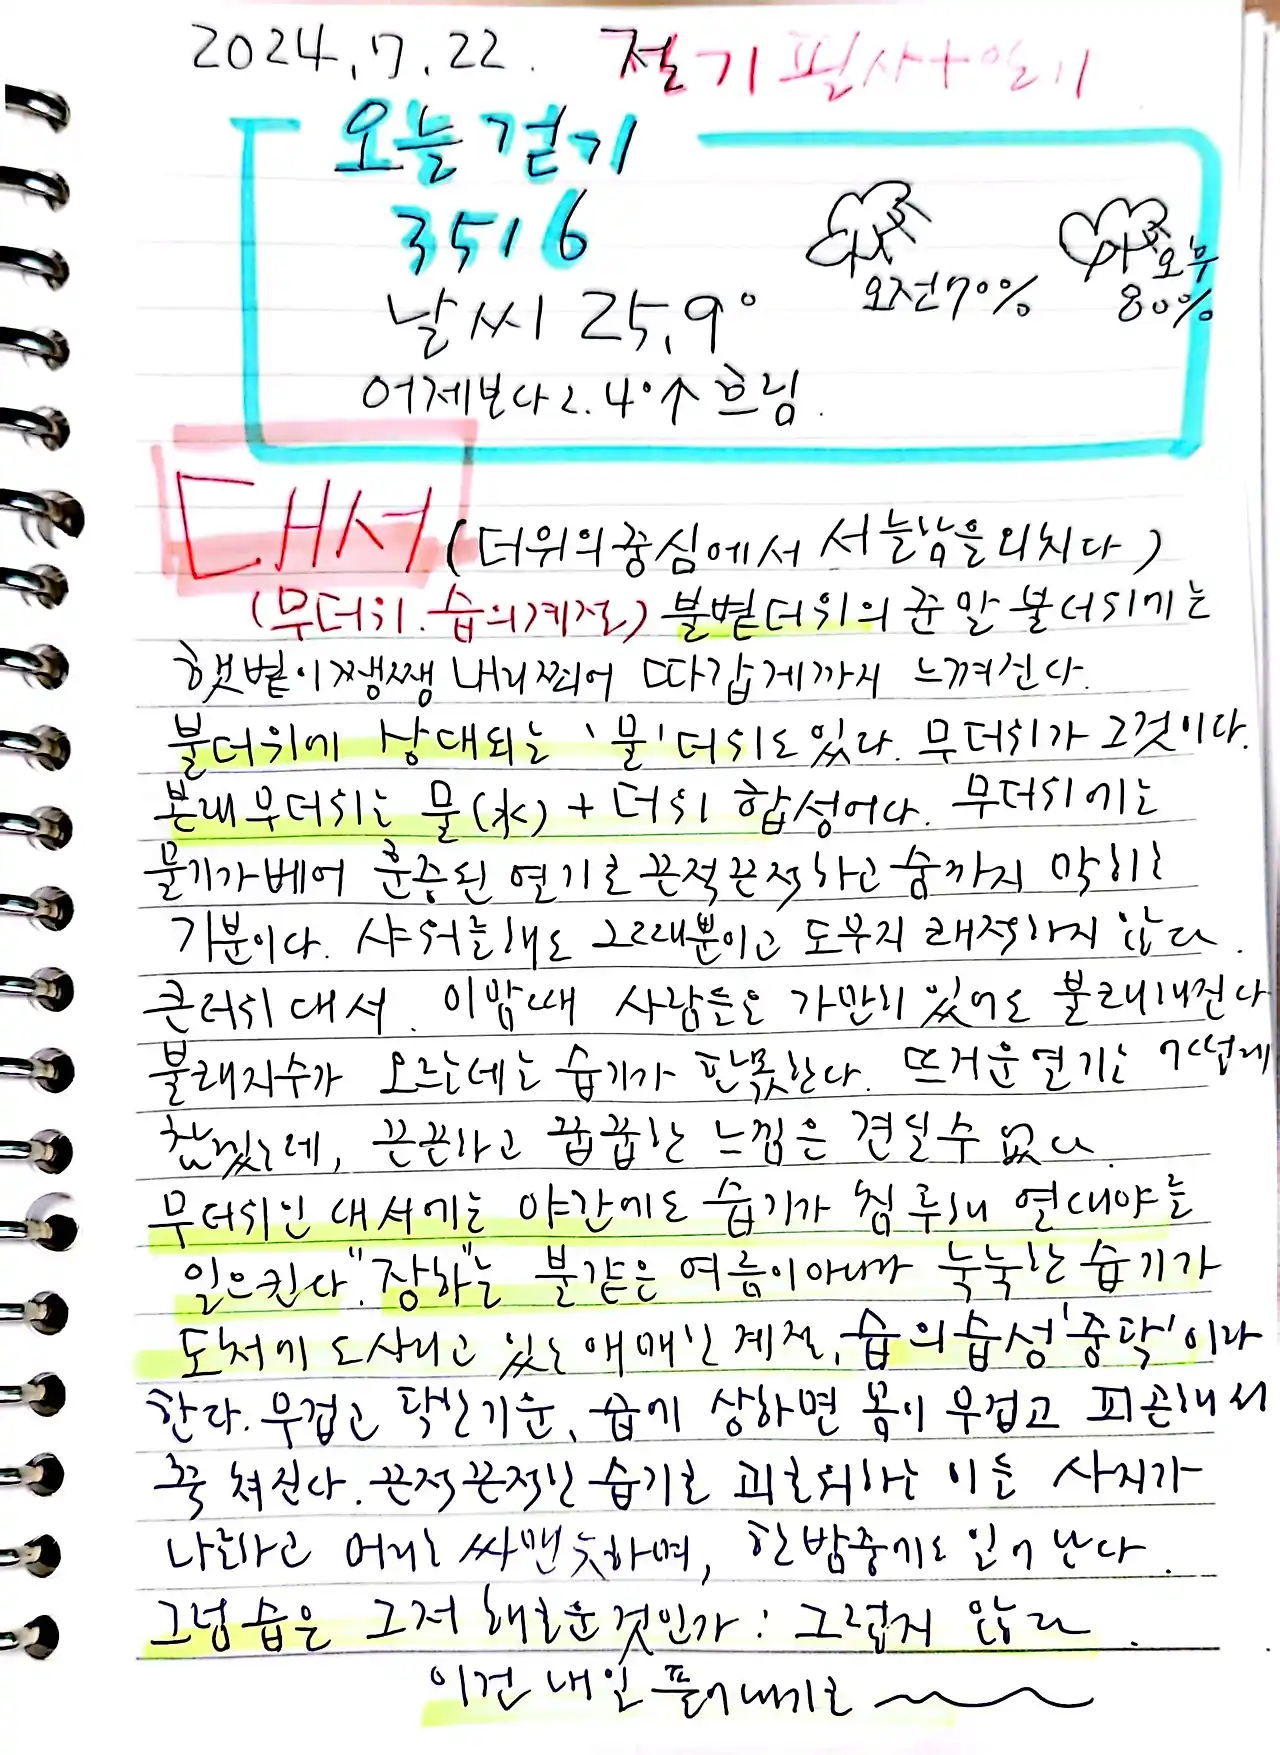 2024.7.22. 절기 필사+일기
오늘 걷기
3516
오전 70%
오후 80%
날씨 25.9°
어제보다 2.4°↑ 흐림.
대서 (더위의 중심에서 서늘함을 외치다)
(무더위. 습의 계절) 불볕더위의 준말 불더위에는
햇볕이 쨍쨍 내리쬐어 따갑게까지 느껴진다.
불더위에 상대되는 '물'더위도 있다. 무더위가 그것이다.
본래 무더위는 물(水) + 더위 합성어다. 무더위에는
물기가 베어 훈증된 열기로 끈적끈적하고 숨까지 막히는
기분이다. 샤워를 해도 그때뿐이고 도무지 쾌적하지 않다.
큰더위 대서. 이맘때 사람들은 가만히 있어도 불쾌해진다
불쾌지수가 오르는데는 습기가 한몫한다. 뜨거운 열기는 어떻게
참겠는데, 끈끈하고 꿉꿉한 느낌은 견딜 수 없다.
무더위인 대서에는 야간에도 습기가 침투해 열대야를
일으킨다. "장하"는 불같은 여름이 아니라 눅눅한 습기가
도처에 도사리고 있는 애매한 계절. 습의 습성 '중탁'이라
한다. 무겁고 탁한 기운, 습에 상하면 몸이 무겁고 피곤해서
푹 쳐진다. 끈적끈적한 습기로 괴로워하는 이들 사지가
나른하고 머리는 싸맨 듯하며, 한밤중에도 일어난다.
그럼 습은 그저 해로운 것인가 : 그렇지 않다.
이건 내일 풀어내기로